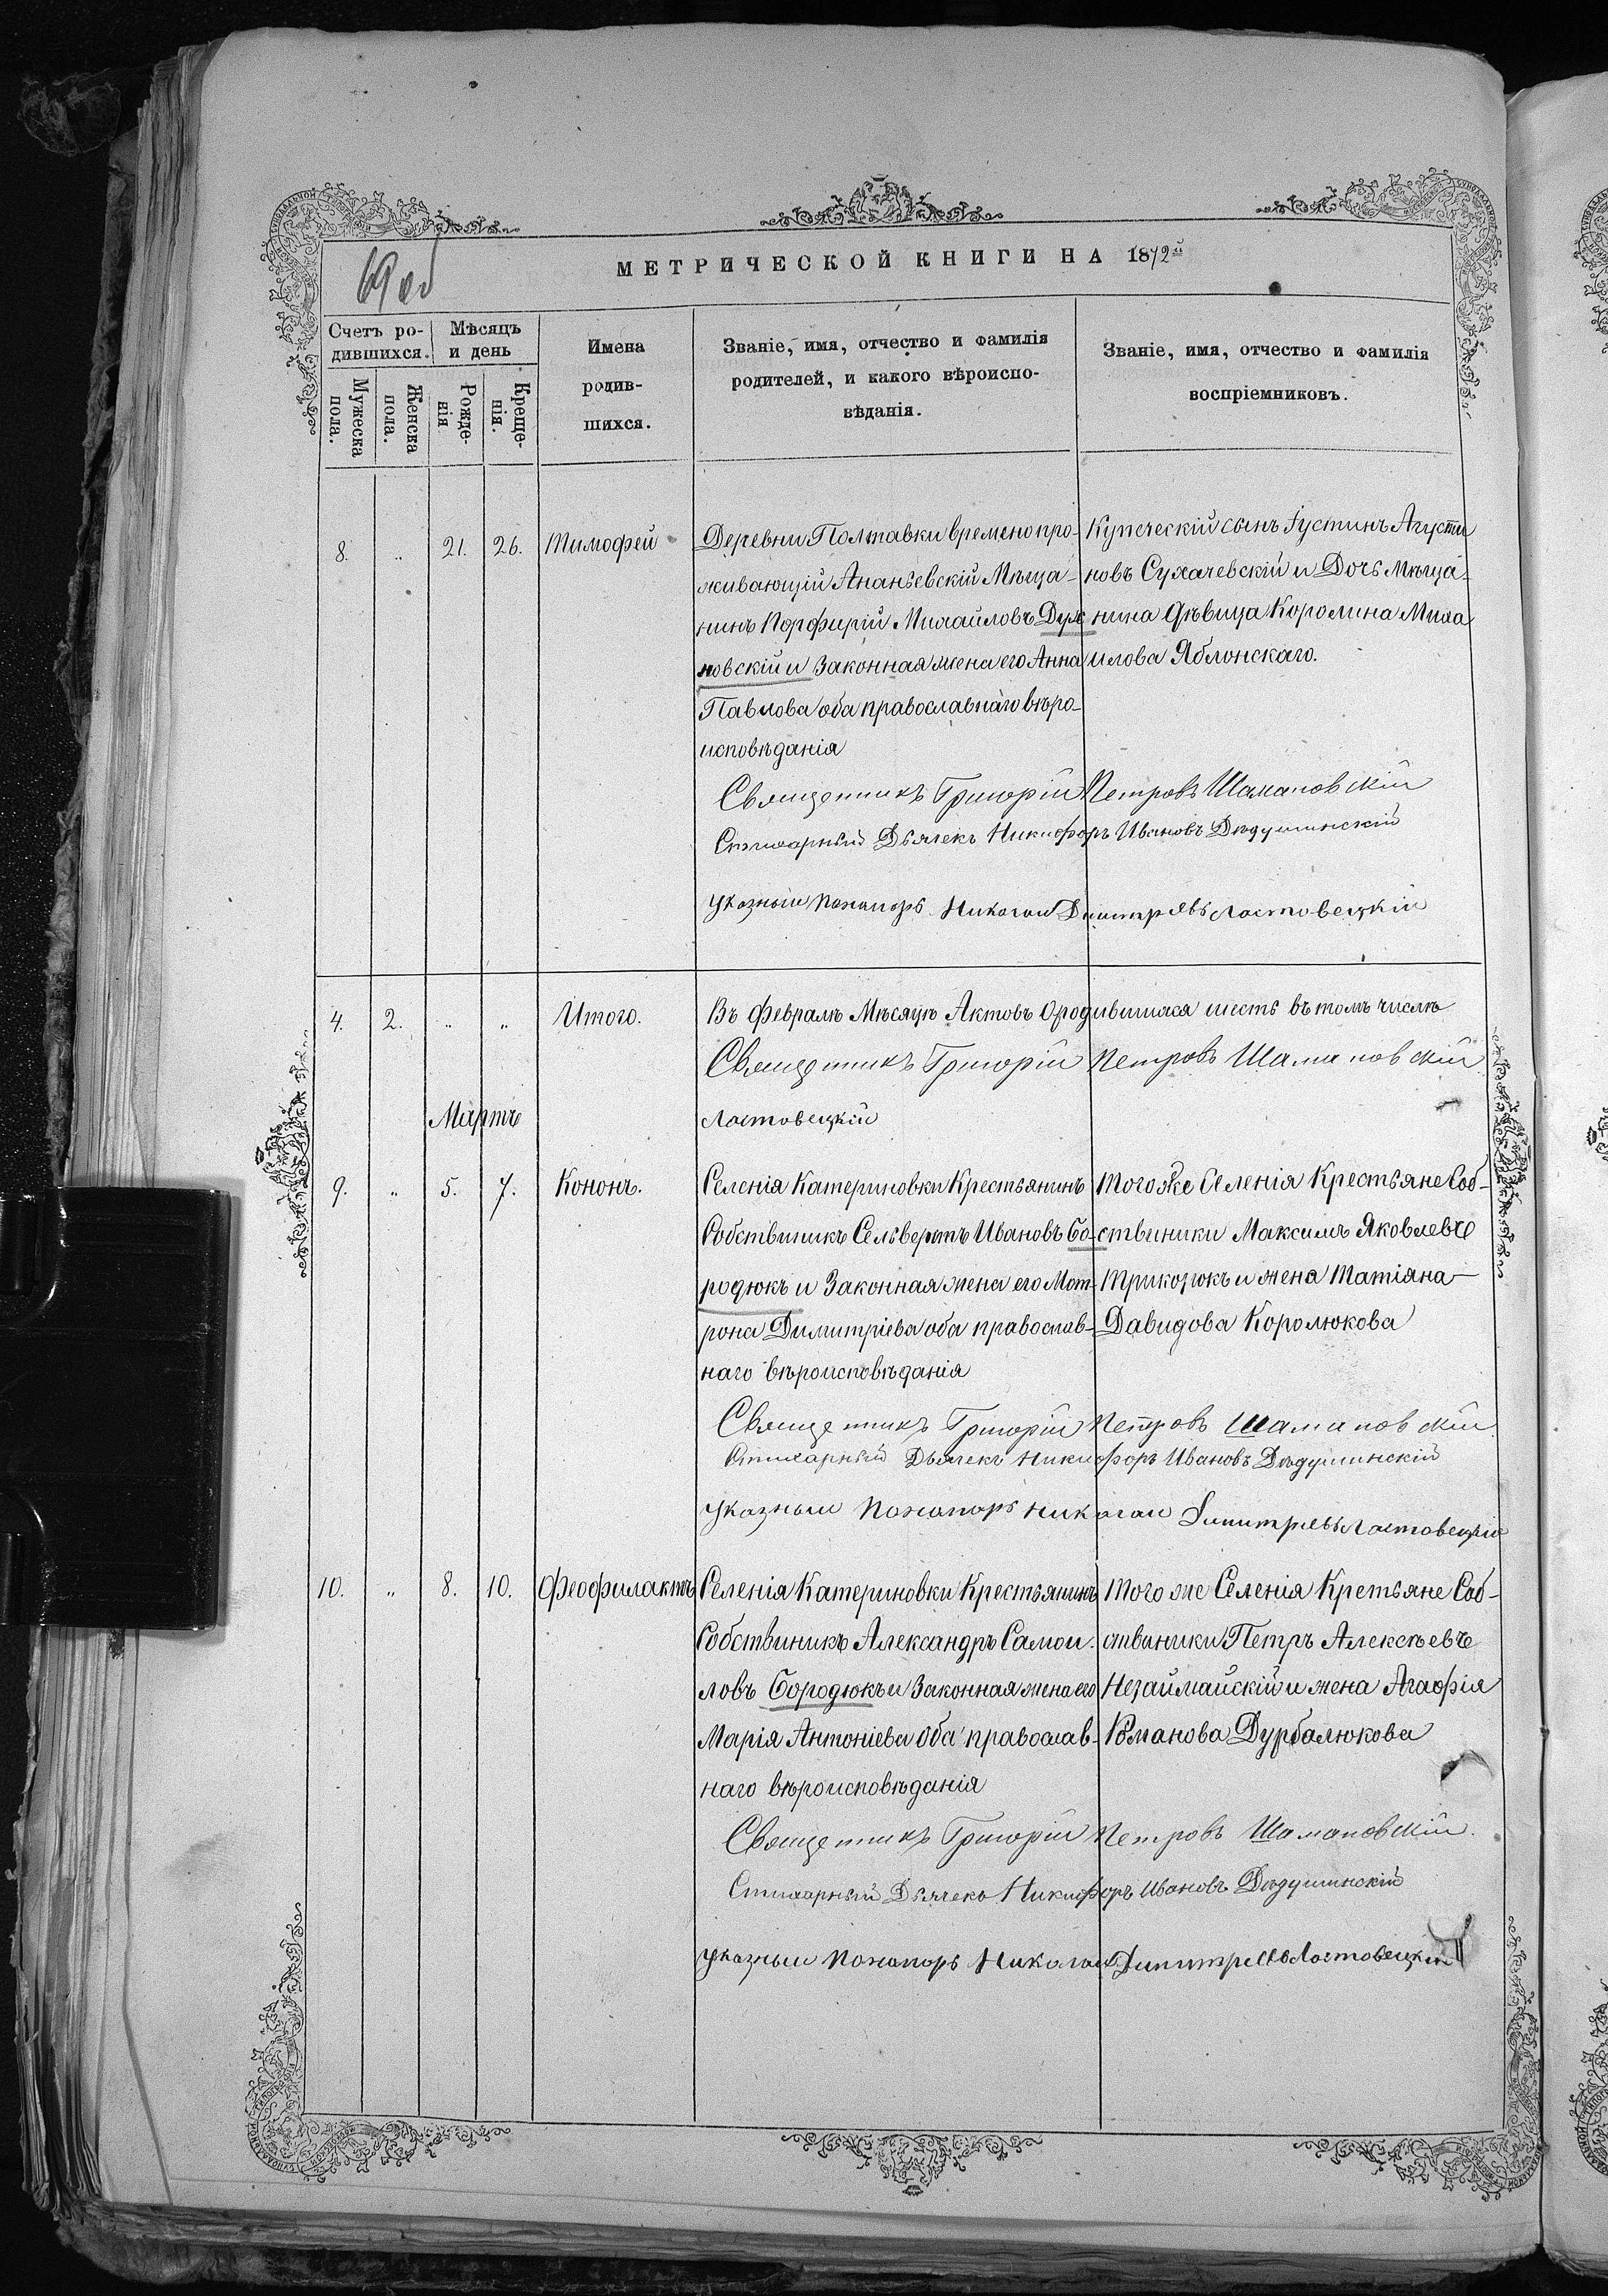 69 об
МЕТРИЧЕСКОЙ КНИГИ НА 1872й
Счетъ ро-
дившихся.
Мужеска
пола.
Женска
пола.
Мѣсяцъ
и день
Рожде-
нія
Креще-
нія.
Имена
родив-
шихся.
Званіе, имя, отчество и фамилія
родителей, и какого вѣроиспо-
вѣданія.
Званіе, имя, отчество и фамилія
воспріемниковъ.
8. „ 21. 26. Тимофей
Деревни Полтавки времено про-
живающій Ананьевскій Мѣща-
нинъ Порфирій Михайловъ Дух
новскій и Законная жена его Анна
Павлова оба православнаго вѣро-
исповѣданія
Купеческій сынъ Іустинъ Агусти
новъ Сухачевскій и Дочь Мѣща-
нина Дѣвица Королина Миха
илова Яблонскаго.
Священникъ Григорій Петровъ Шамановскій
Стихарный Дьячекъ Никифоръ Ивановъ Дѣдушинскій
Указный Пономарь Николай Димитріевъ Ластовецкій
4. 2. „ „ Итого. Въ Февралѣ Мѣсяцѣ Актовъ О родившихся шесть въ томъ числѣ
Священникъ Григорій Петровъ Шамановскій
Мартъ
Ластовецкій
9. „ 5. 7. Кононъ.
Селенія Катериновки Крестьянинъ
Собственикъ Сельверстъ Ивановъ Бо-
родюкъ и Законная жена его Мат-
рона Димитріева оба православ-
наго вѣроисповѣданія
Того же Селенія Крестьяне Соб-
ственики Максимъ Яковлевъ
Трикозюкъ и жена Татіяна
Давидова Королюкова
Священникъ Григорій Петровъ Шамановскій
Стихарный Дьячекъ Никифоръ Ивановъ Дѣдушинскій
Указный Пономарь Николай Димитріевъ Ластовецкій
10. „ 8. 10. Феофилактъ
Селенія Катериновки Крестьянинъ
Собственикъ Александръ Самои-
ловъ Бородюкъ и Законная жена его
Марія Антоніева Оба православ-
наго вѣроисповѣданія
Того же Селенія Кретьяне Соб-
ственики Петръ Алексѣевъ
Незаймайскій и жена Агафія
Романова Дурбалюкова
Священникъ Григорій Петровъ Шамановскій
Стихарный Дьячекъ Никифоръ Ивановъ Дѣдушинскій
Указный Пономарь Николай Димитріевъ Ластовецкій